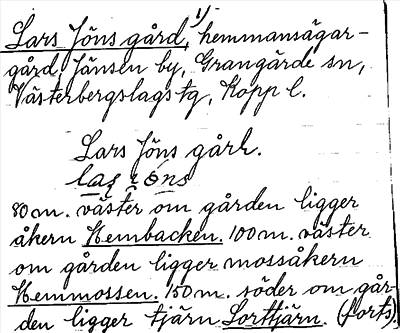 1)-
Lars Jöns gård, hemmansägar-
gård, Jänsen by, Grangärde sn,
Västerbergslags tg, Kopp l.
Lars Jöns gård.
80 m. väster om gården ligger
åkern Hembacken. 100 m. väster
om gården ligger mossåkern
Hemmossen. 150 m. söder om går-
den ligger tjärn Lorttjärn. (forts).